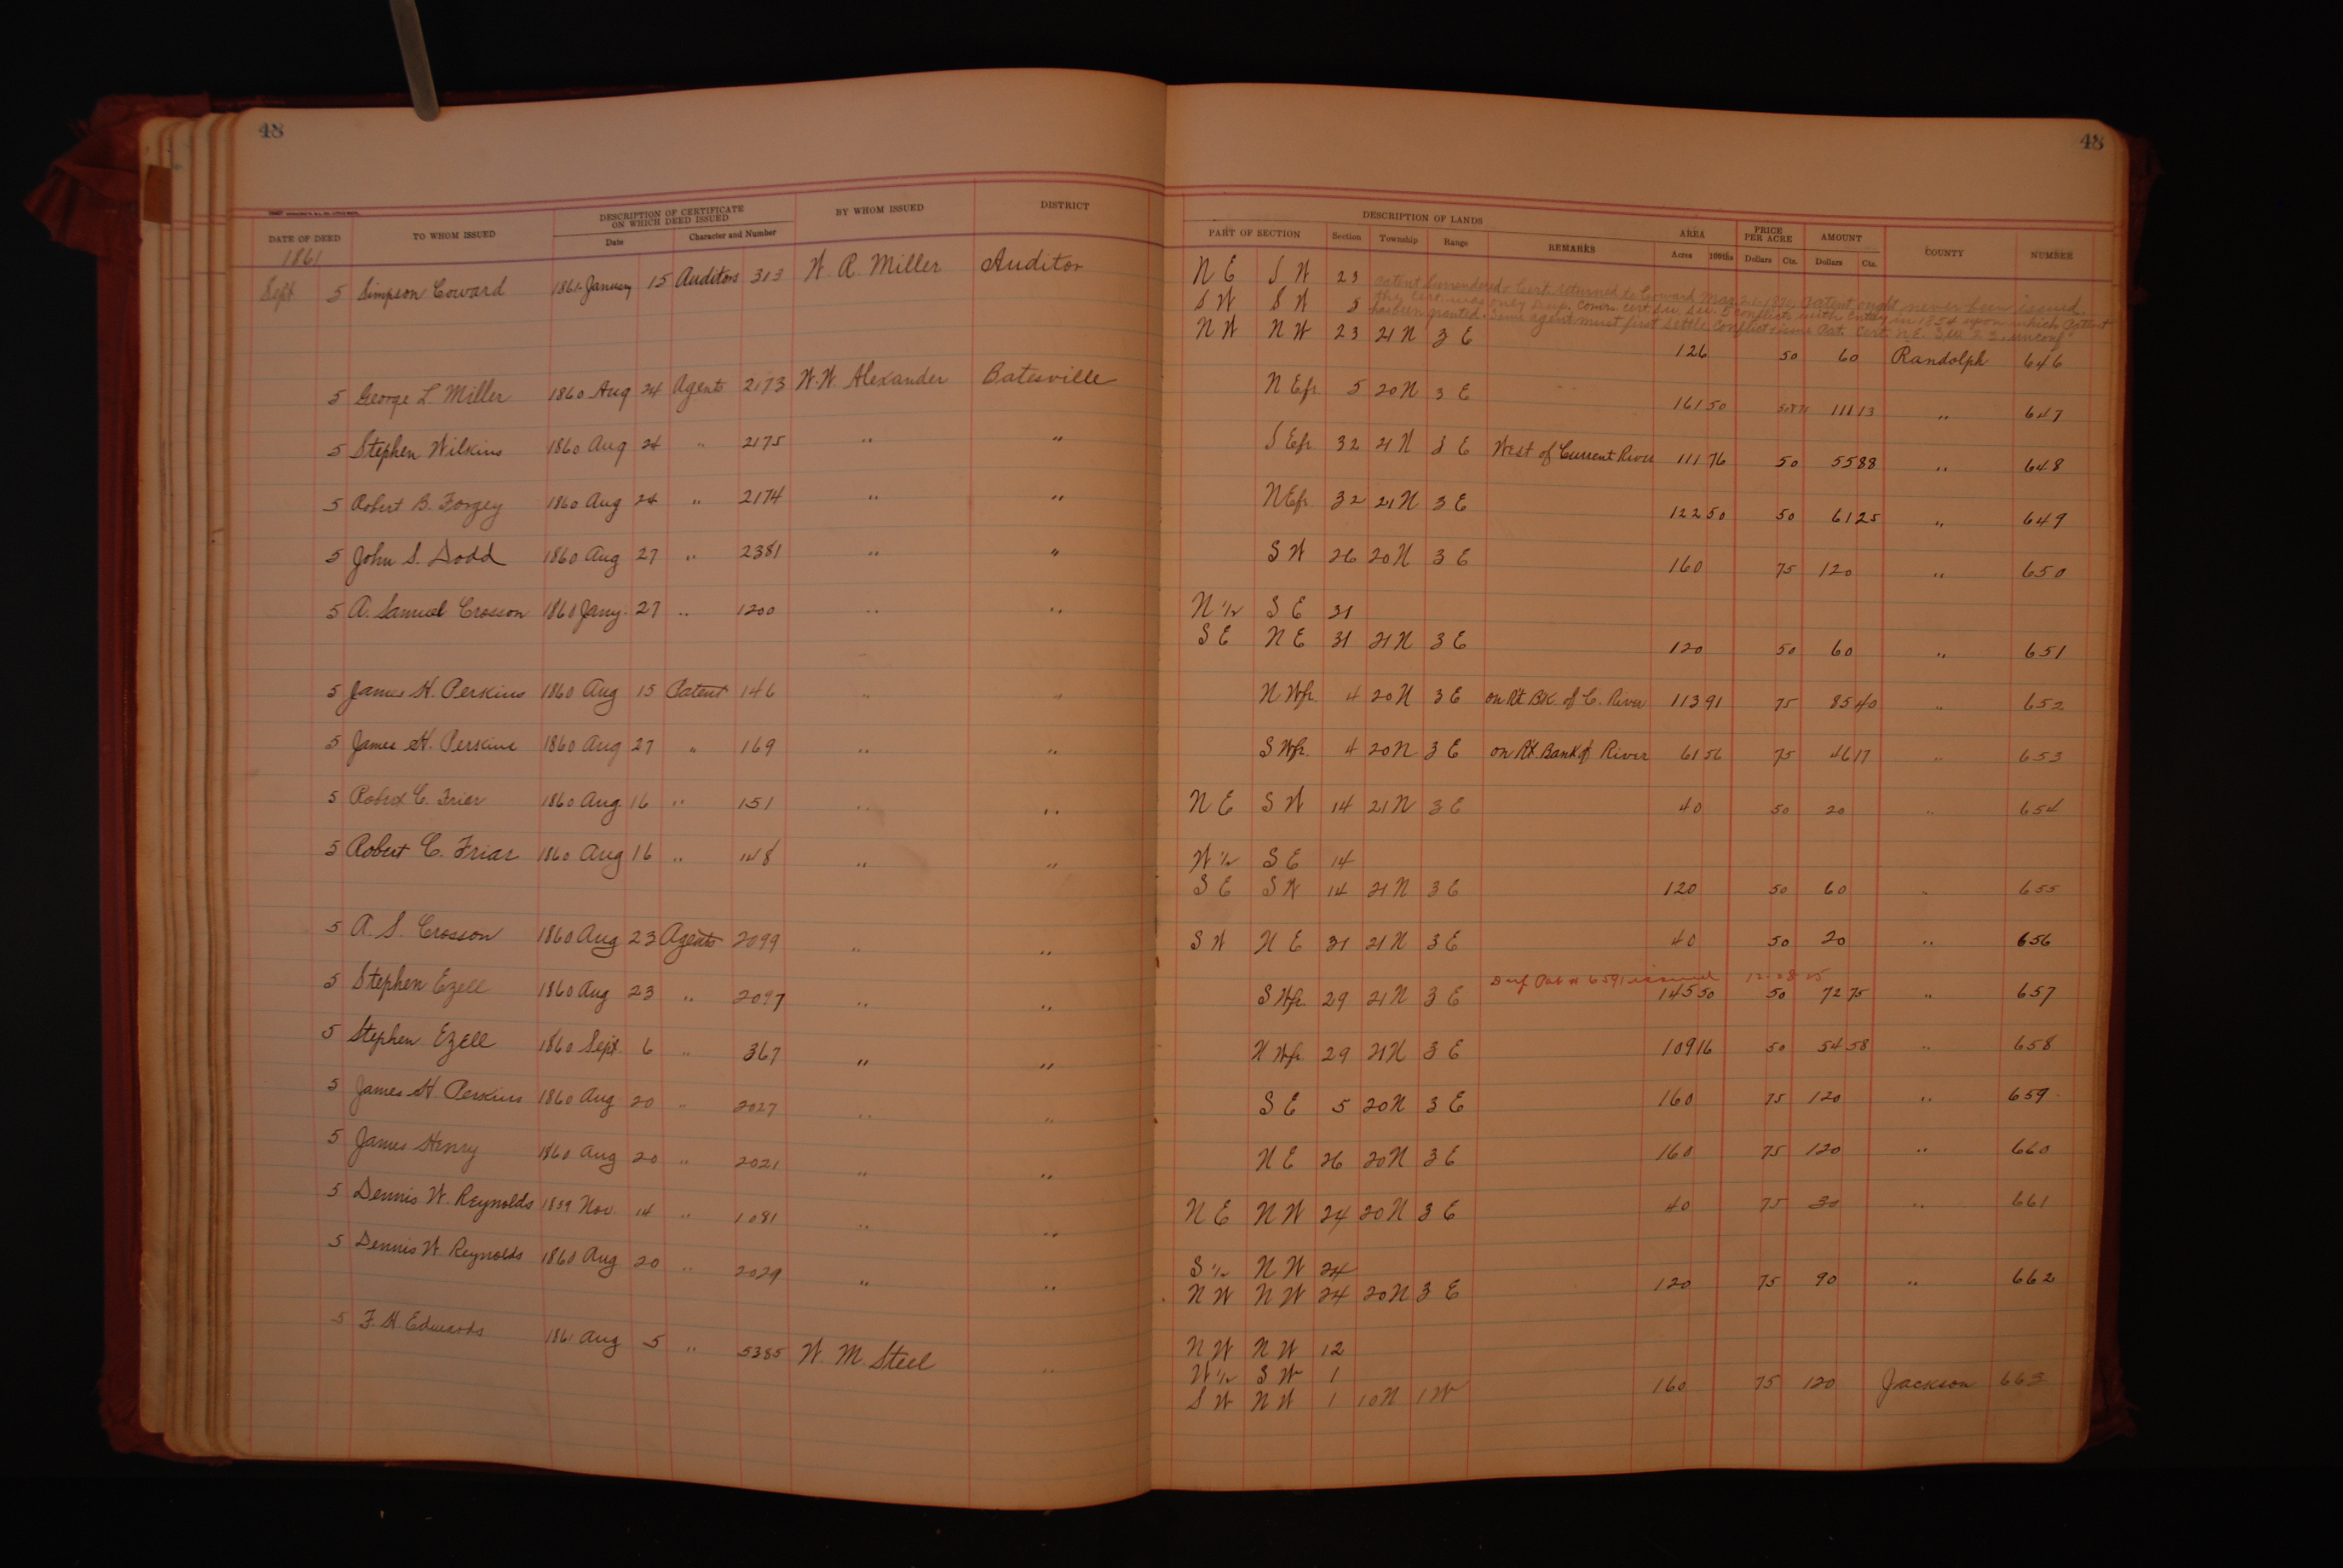 48
48
DESCRIPTION OF CERTIFICATE ON WHICH DEED ISSUED
BY WHOM ISSUED
DISTRICT
DESCRIPTION OF LANDS
AREA
PRICE PER ACRE
AMOUNT
DATE OF DEED
TO WHOM ISSUED
Date
Character and Number
PART OF SECTION
Section
Township
Range
REMARKS
Acres
100ths
Dollars
Cts.
Dollars
Cts.
COUNTY
NUMBER
1861
Sept 5 Simpson Coward 1861 January 15 Auditors 313 W. R. Miller Auditor N E S W 23
S W S W 5
N W N W 23 21 N 3 E 126 50 60 Randolph 646
Patent Surrendered & Cert. returned to Coward Patent ought never been issued.
the Cert. was only Swp. Comr. cert. S.W. S.W. 5 conflicts with entry in 1854 upon which Patent
has been granted. Same agent must first settle conflict
5 George L Miller 1860 Aug 24 Agents 2173 W. W. Alexander Batesville N E fr. 5 20 N 3 E 161 50 111 13 " 647
5 Stephen Wilkins 1860 Aug 24 " 2175 " " S E fr 32 21 N 3 E West of Current River 111 76 50 55 88 " 648
5 Robert B. Forgey 1860 Aug 24 " 2174 " " N E fr 32 21 N 3 E 122 50 50 61 25 " 649
5 John S. Dodd 1860 Aug 27 " 2381 " " S W 26 20 N 3 E 160 75 120 " 650
5 A. Samuel Crosson 1860 Jany. 27 " 1200 " " N 1/2 S E 31
S E N E 31 21 N 3 E 120 50 60 " 651
5 James H. Perkins 1860 Aug 15 Patent 146 " " N W fr. 4 20 N 3 E on Rt. BK. of C. River 113 91 75 85 40 " 652
5 James H. Perkins 1860 Aug 27 " 169 " " S W fr. 4 20 N 3 E on Rt. Bank of River 61 56 75 46 17 " 653
5 Robert C. Friar 1860 Aug 16 " 151 " " N E S W 14 21 N 3 E 40 50 20 " 654
5 Robert C. Friar 1860 Aug 16 " 148 " " W 1/2 S E 14
S E S W 14 21 N 3 E 120 50 60 " 655
5 A. S. Crosson 1860 Aug 23 Agents 2099 " " S W N E 31 21 N 3 E 40 50 20 " 656
Dup Pat # 6591 issued 12-28-25
5 Stephen Ezell 1860 Aug 23 " 2097 " " S W fr. 29 21 N 3 E 145 50 50 72 75 " 657
5 Stephen Ezell 1860 Sept. 6 " 367 " " N W fr. 29 21 N 3 E 109 16 50 54 58 " 658
5 James H Perkins 1860 Aug 20 " 2027 " " S E 5 20 N 3 E 160 75 120 " 659
5 James Henry 1860 Aug 20 " 2021 " " N E 26 20 N 3 E 160 75 120 " 660
5 Dennis W. Reynolds 1859 Nov. 14 " 1081 " " N E N W 24 20 N 3 E 40 75 30 " 661
5 Dennis W. Reynolds 1860 Aug 20 " 2029 " " S 1/2 N W 24
N W N W 24 20 N 3 E 120 75 90 " 662
5 F. H Edwards 1861 Aug 5 " 5385 W. M. Steel " N W N W 12
W 1/2 S W 1
S W N W 1 10 N 1 W 160 75 120 Jackson 663